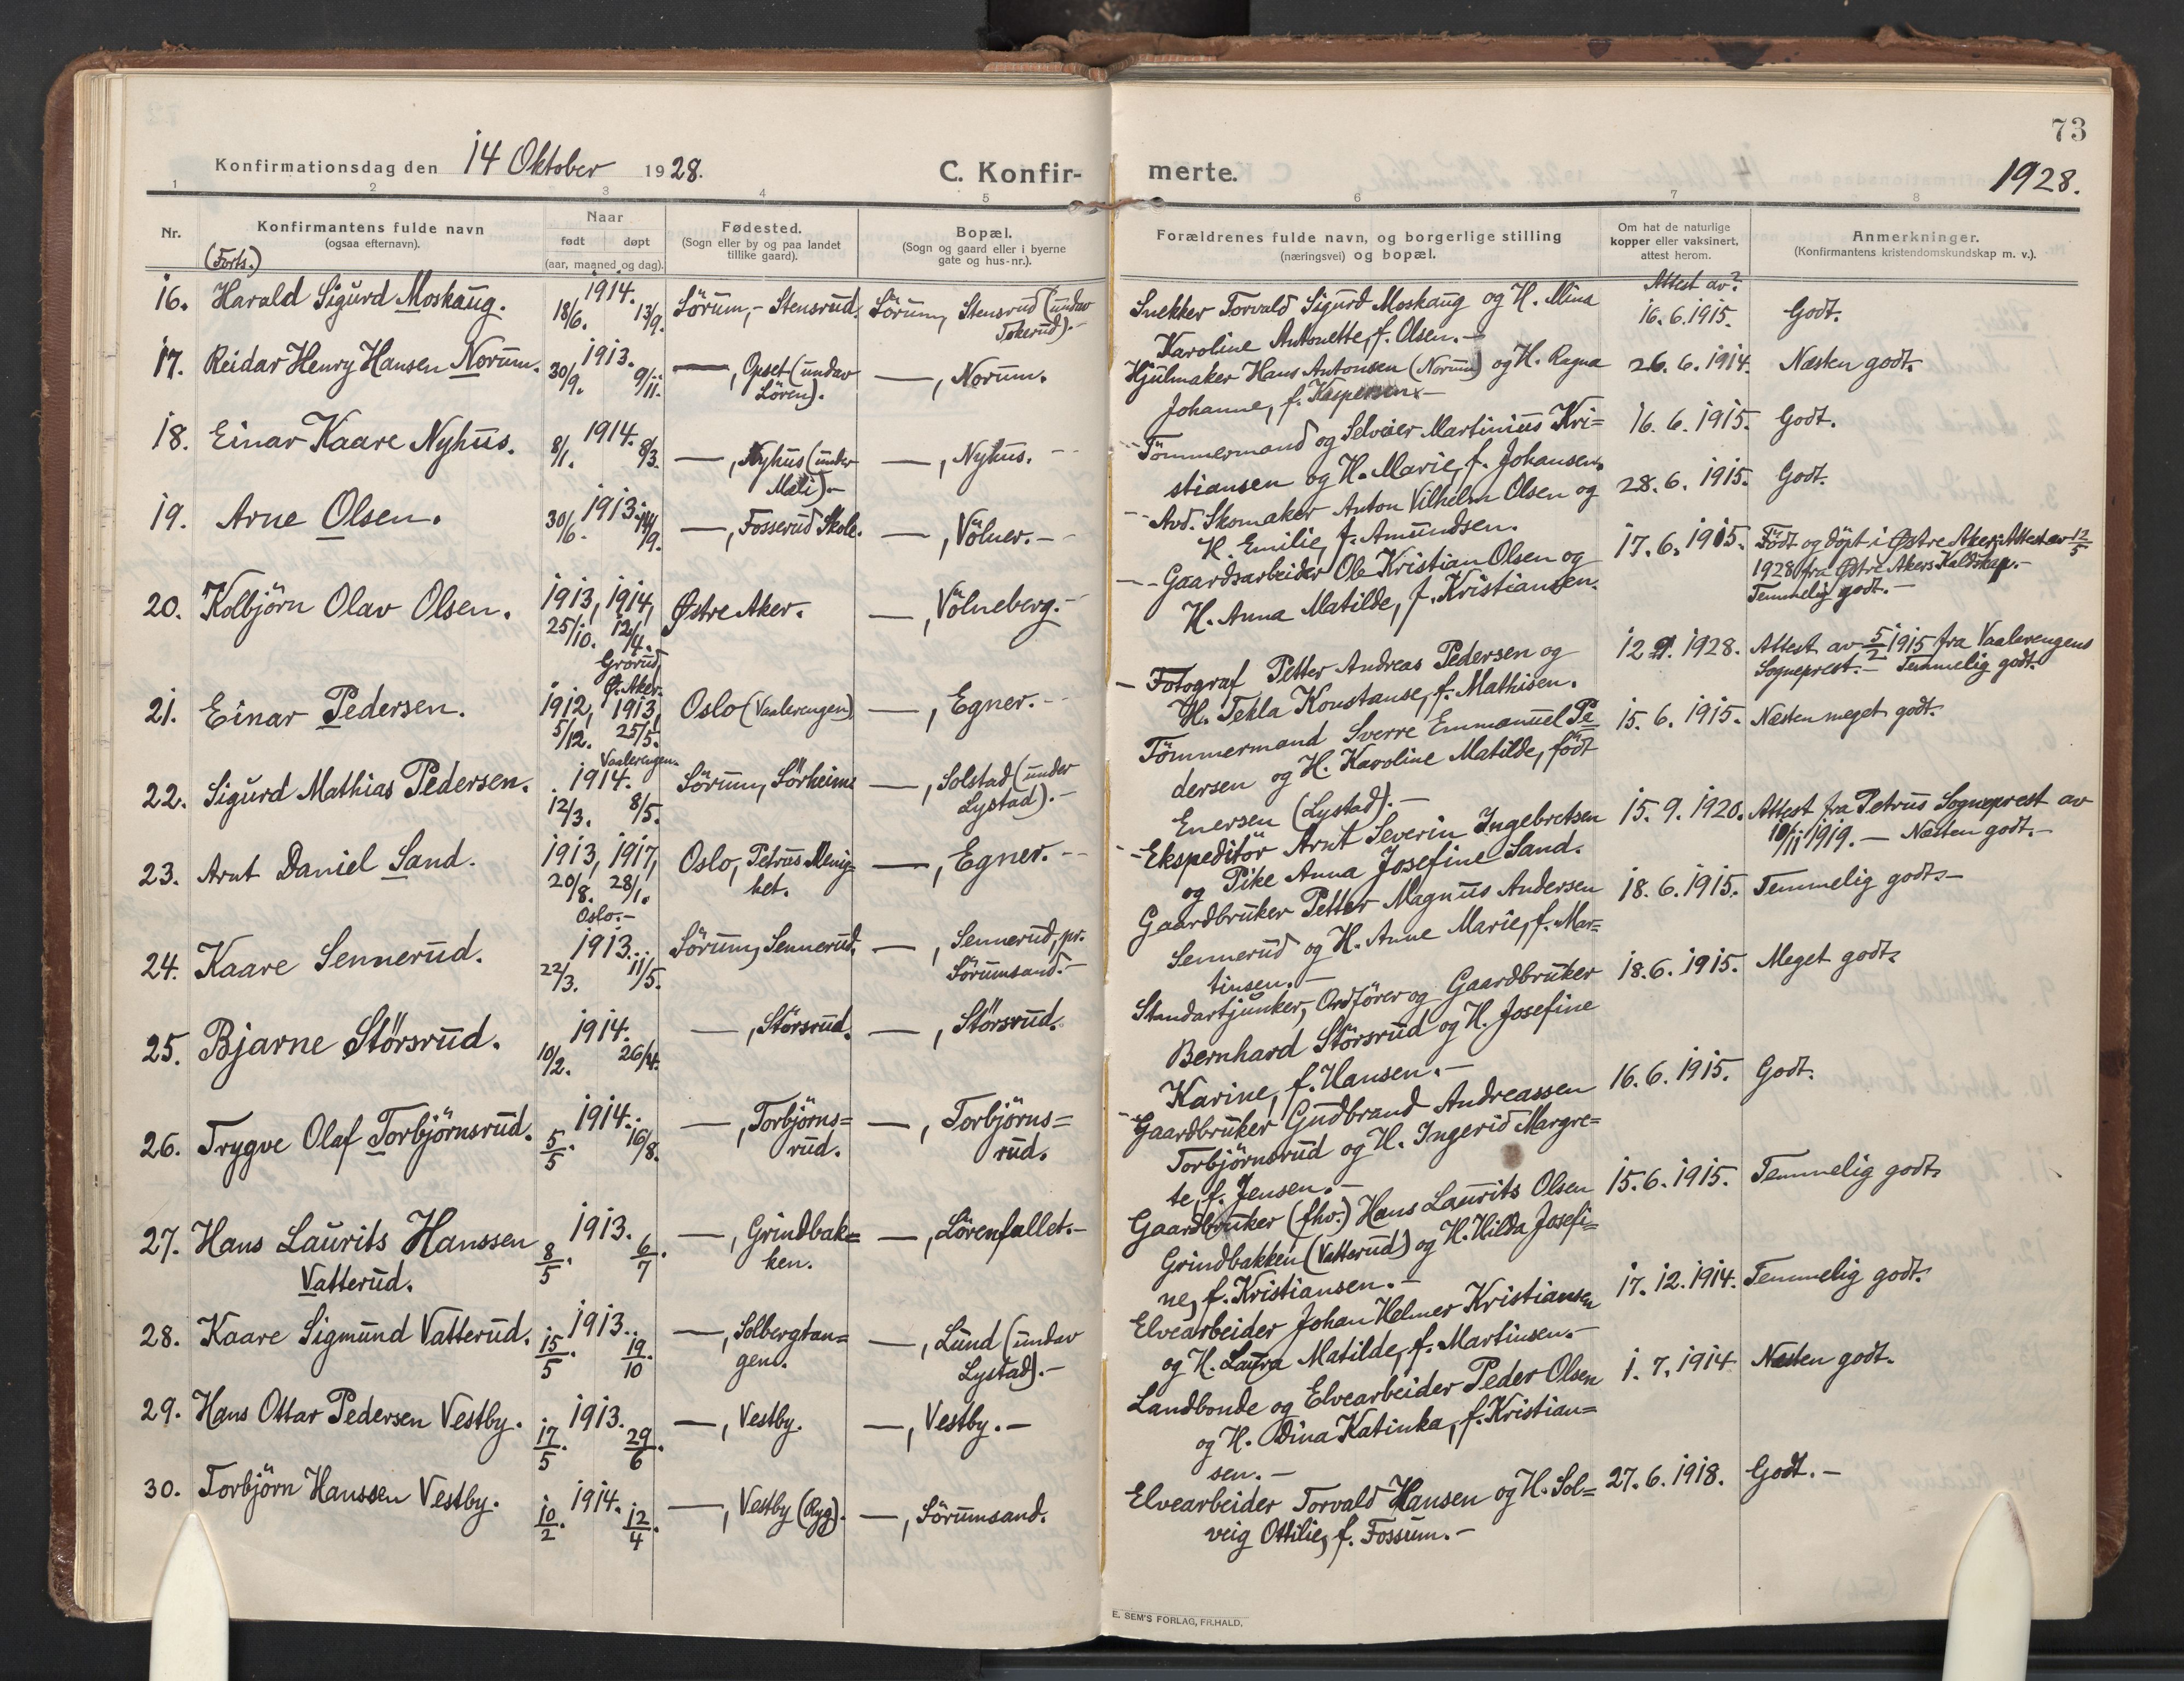 73
Konfirmationsdag den 14 Oktober 1928.
C. Konfir-
merte.
1928.
1 2 3 4 5 6 7 8
Nr.
Konfirmantens fulde navn
(ogsaa efternavn).
(Forts.)
Naar
født døpt
(aar, maaned og dag).
Fødested.
(Sogn eller by og paa landet
tillike gaard).
Bopæl.
(Sogn og gaard eller i byerne
gate og hus-nr.).
Forældrenes fulde navn, og borgerlige stilling
(næringsvei) og bopæl.
Om hat de naturlige
kopper eller vaksinert,
attest herom.
Anmerkninger.
(Konfirmantens kristendomskundskap m. v.).
Attest av?
16. Harald Sigurd Moskaug.
1914.
18/6. 13/9.
Sörum, - Stensrud.
Sörum, Stensrud (undav
Tokerud).-
Snekker Torvald Sigurd Moskaug og H. Mina
Karoline Antonette, f. Olsen.-
16.6.1915.
Godt.
17. Reidar Henry Hansen Norum.
1913.
30/9. 9/11.
—, Opset (undav
Lören).
—, Norum.
Hjulmaker Hans Antonsen (Norum) og H. Ragna
Johanne, f. Kaspersen.-
26.6.1914.
Næsten godt.
18. Einar Kaare Nyhus.
1914.
8/1. 8/3.
—, Nyhus (under
Mæli).-
—, Nyhus.
Tömmermand og Selveier Martinius Kri=
stiansen og H. Marie, f. Johansen.
16.6.1915.
Godt.
19. Arne Olsen.
1913.
30/6. 14/9.
—, Fosserud Skole.
—, Völner.-
Avd. Skomaker Anton Vilhelm Olsen og
H. Emilie, f. Amundsen.
28.6.1915.
Godt.
20. Kolbjörn Olav Olsen.
1913, 1914,
25/10. 12/4.
Grorud,
Ø. Aker.
Østre Aker.
—, Völneberg.-
Gaardsarbeider Ole Kristian Olsen og
H. Anna Matilde, f. Kristiansen.
17.6.1915.
Født og døpt i Østre Aker. Attest av 12/5
1928 fra Østre Akers Kaldskap.-
Temmelig godt.-
21. Einar Pedersen.
1912, 1913,
5/12. 25/5.
Vaalerengen.
Oslo (Vaalerengen)
—, Egner.-
Fotograf Petter Andreas Pedersen og
H. Tekla Konstanse, f. Mathisen.
12.9.1928.
Attest av 5/2 1915 fra Vaalerengens
Sogneprest.- Temmelig godt.
22. Sigurd Mathias Pedersen.
1914.
12/3. 8/5.
Sörum, Sörheim
—, Solstad (under
Lystad).-
Tömmermand Sverre Emmanuel Pe
dersen og H. Karoline Matilde, født
Enersen (Lystad).-
15.6.1915.
Næsten meget godt.
23. Arnt Daniel Sand.
1913, 1917,
20/8. 28/1.
Oslo.-
Oslo, Petrus Menig=
het.
—, Egner.-
Ekspeditör Arnt Severin Ingebretsen
og Pike Anna Josefine Sand.
15.9.1920.
Attest fra Petrus Sogneprest av
10/11 1919.- Næsten godt.-
24. Kaare Sennerud.
1913.
22/3. 11/5.
Sörum, Sennerud.
—, Sennerud, pr.
Sörumsand.-
Gaardbruker Petter Magnus Andersen
Sennerud og H. Anne Marie, f. Mar=
tinsen.-
18.6.1915.
Temmelig godt.-
25. Bjarne Störsrud.
1914.
10/2. 26/4.
—, Störsrud.
—, Störsrud.
Standartjunker, Ordförer og Gaardbruker
Bernhard Störsrud og H. Josefine
Karine, f. Hansen.-
18.6.1915.
Meget godt.
26. Trygve Olaf Torbjörnsrud.
1914.
5/5. 16/8.
—, Torbjörns=
rud.
—, Torbjörns=
rud.
Gaardbruker Gudbrand Andreassen
Torbjörnsrud og H. Ingerid Margre=
te, f. Jensen.-
16.6.1915.
Godt.
27. Hans Laurits Hanssen
Vatterud.
1913.
8/5. 6/7.
—, Grindbak=
ken.
—, Lörenfallet.-
Gaardbruker (fhv.) Hans Laurits Olsen
Grindbakken (Vatterud) og H. Hilda Josefi=
ne, f. Kristiansen.-
15.6.1915.
Temmelig godt.
28. Kaare Sigmund Vatterud.
1913.
15/5. 19/10.
—, Solbergtan=
gen.
—, Lund (undav
Lystad).-
Elvearbeider Johan Helmer Kristiansen
og H. Laura Matilde, f. Martinsen.-
17.12.1914.
Temmelig godt.
29. Hans Ottar Pedersen Vestby.
1913.
17/5. 29/6.
—, Vestby.
—, Vestby.-
Landbonde og Elvearbeider Peder Olsen
og H. Dina Katinka, f. Kristian=
sen.-
1.7.1914.
Næsten godt.
30. Torbjörn Hanssen Vestby.
1914.
10/2. 12/4.
—, Vestby (Ryg).
—, Sörumsand.
Elvearbeider Torvald Hansen og H. Sol=
veig Ottilie, f. Fossum.-
27.6.1918.
Godt.-
E. SEM'S FORLAG, FR.HALD.